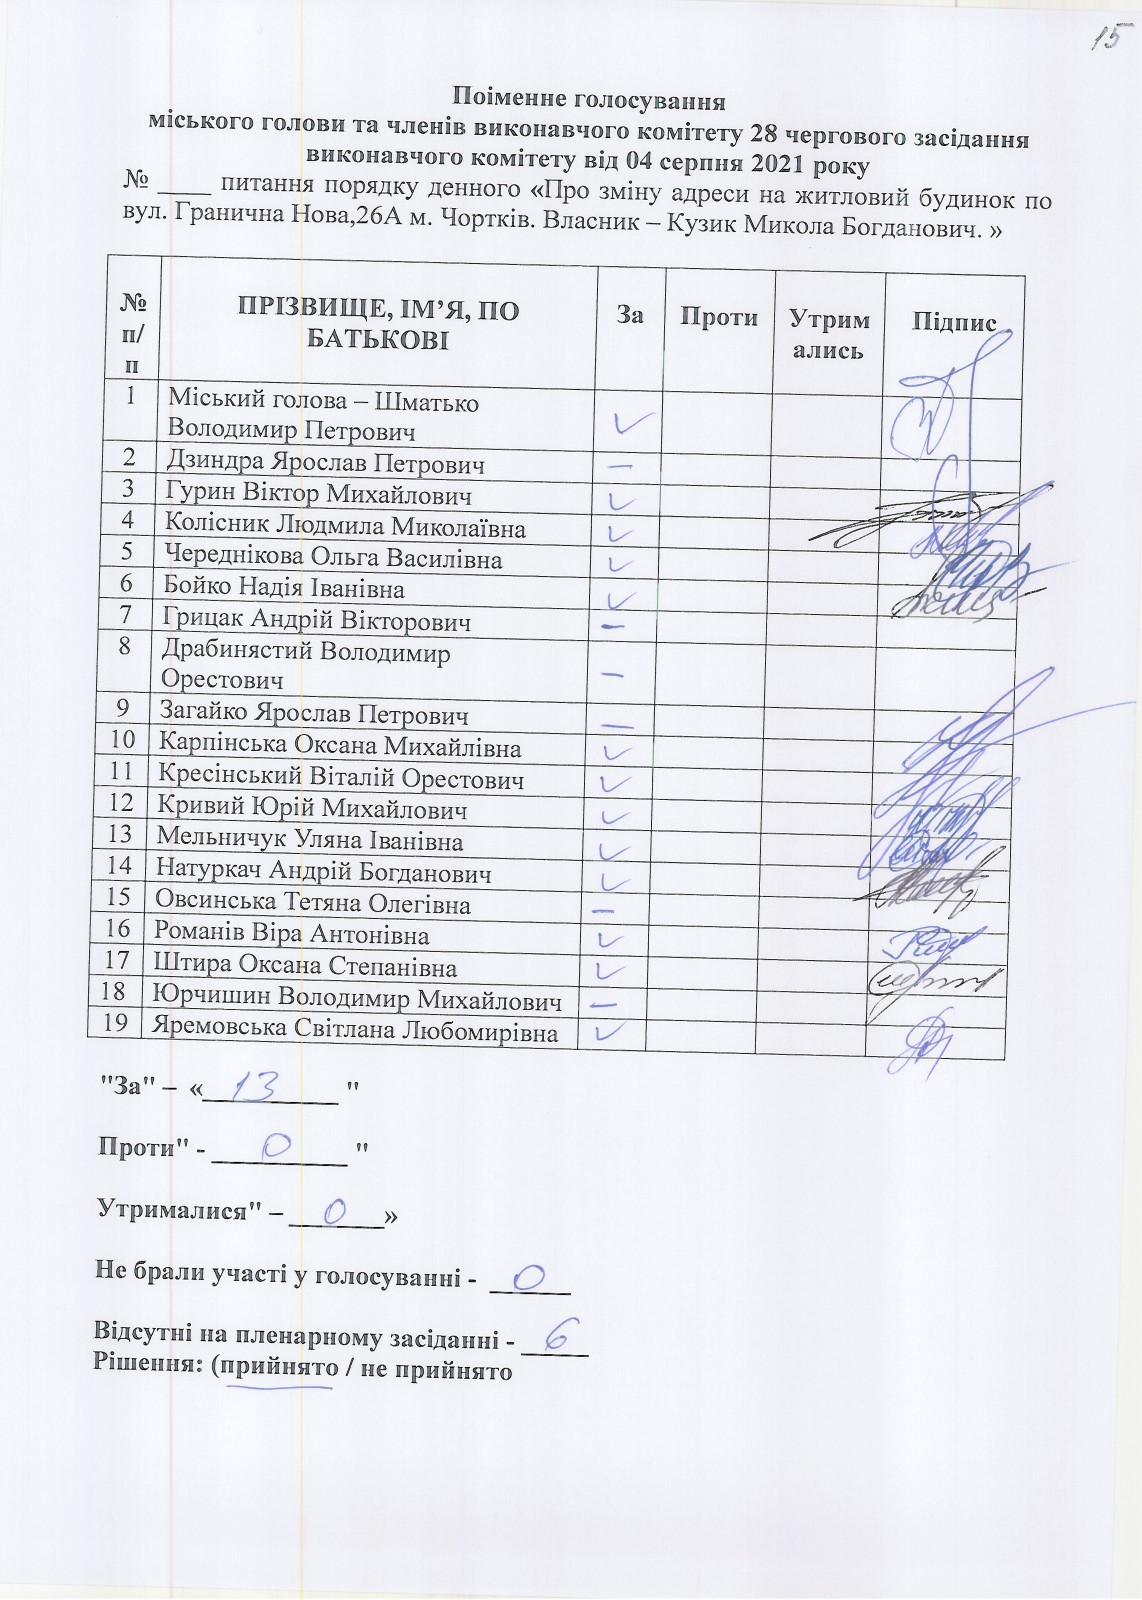 15
Поіменне голосування
міського голови та членів виконавчого комітету 28 чергового засідання
виконавчого комітету від 04 серпня 2021 року
№ ____ питання порядку денного «Про зміну адреси на житловий будинок по
вул. Гранична Нова,26А м. Чортків. Власник – Кузик Микола Богданович. »
№ п/п ПРІЗВИЩЕ, ІМ’Я, ПО БАТЬКОВІ За Проти Утрим ались Підпис
1 Міський голова – Шматько
Володимир Петрович ✓
2 Дзиндра Ярослав Петрович –
3 Гурин Віктор Михайлович ✓
4 Колісник Людмила Миколаївна ✓
5 Череднікова Ольга Василівна ✓
6 Бойко Надія Іванівна ✓
7 Грицак Андрій Вікторович –
8 Драбинястий Володимир
Орестович –
9 Загайко Ярослав Петрович –
10 Карпінська Оксана Михайлівна ✓
11 Кресінський Віталій Орестович ✓
12 Кривий Юрій Михайлович ✓
13 Мельничук Уляна Іванівна ✓
14 Натуркач Андрій Богданович ✓
15 Овсинська Тетяна Олегівна –
16 Романів Віра Антонівна ✓
17 Штира Оксана Степанівна ✓
18 Юрчишин Володимир Михайлович –
19 Яремовська Світлана Любомирівна ✓
"За" – «13"
Проти" - 0"
Утрималися" – 0»
Не брали участі у голосуванні - 0
Відсутні на пленарному засіданні - 6
Рішення: (прийнято / не прийнято